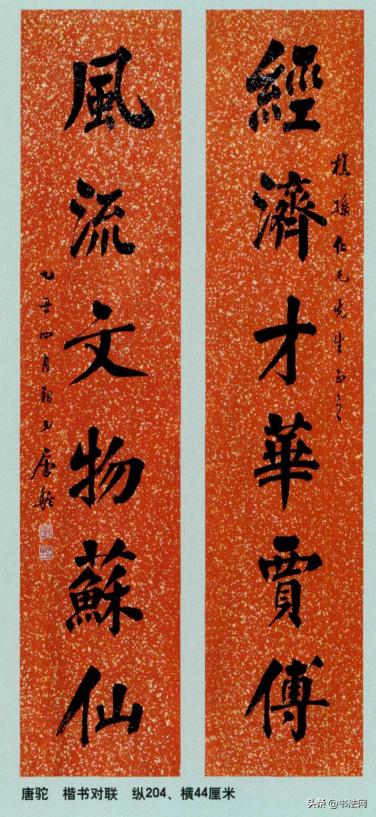 經濟才華賈傅
孫仁兄先生正之
風流文物蘇仙
乙丑四月 唐駝
唐驼 楷书对联 纵204、横44厘米
头条 @书法网